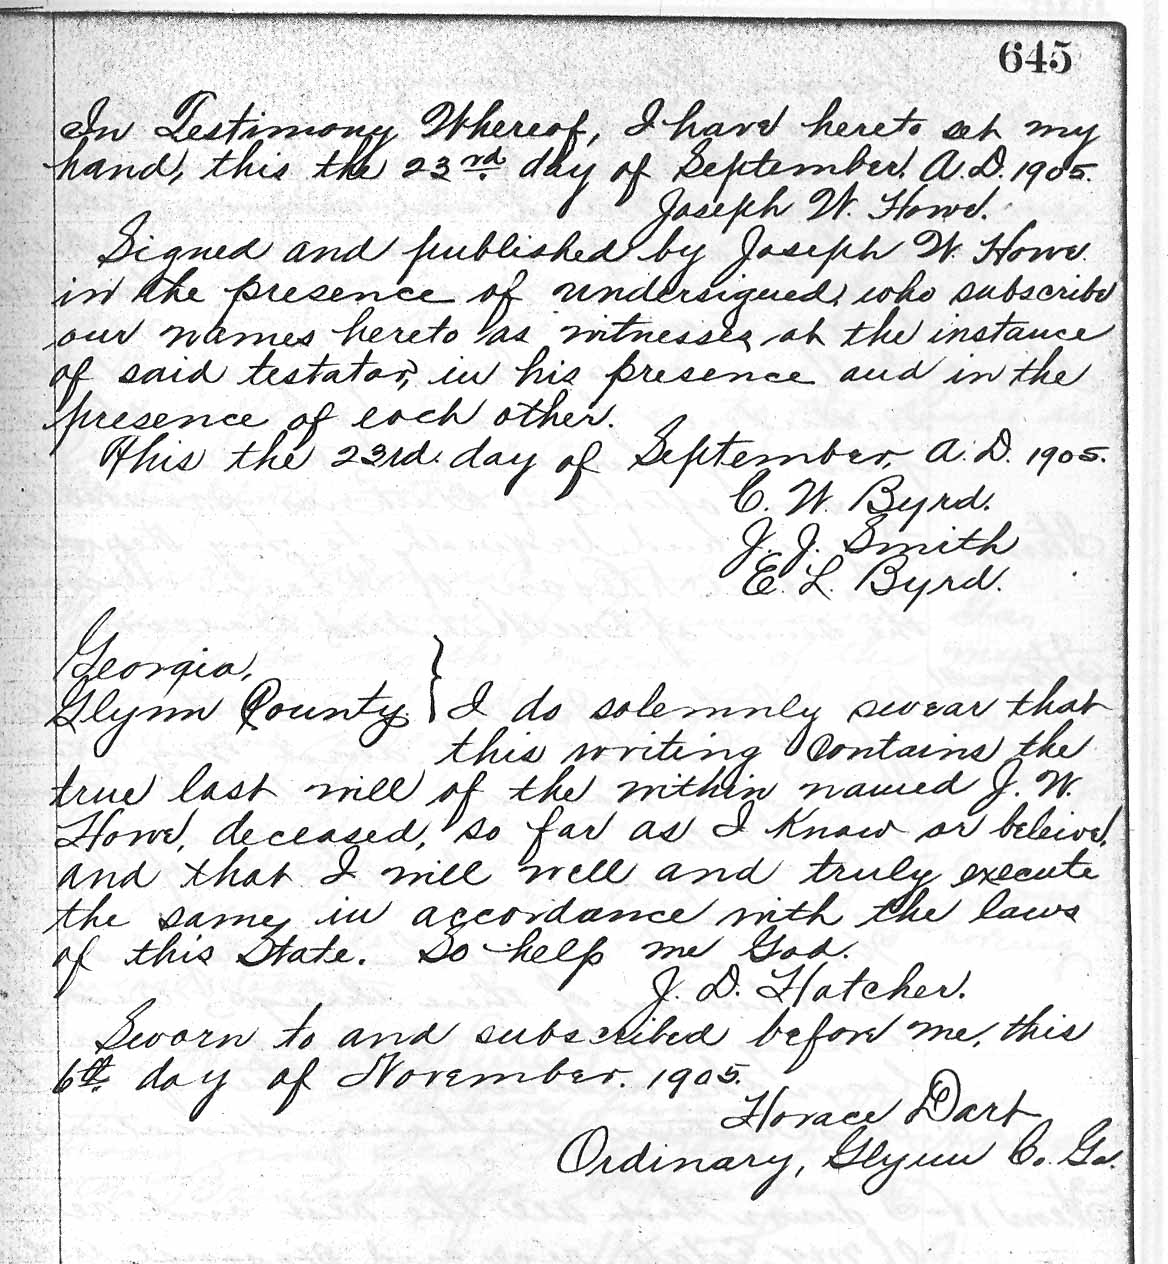 645
In Testimony Whereof, I have hereto set my
hand, this the 23rd. day of September. A.D. 1905.
Joseph W. Howe.
Signed and published by Joseph W. Howe
in the presence of undersigned, who subscribe
our names hereto as witnesses at the instance
of said testator, in his presence and in the
presence of each other.
This the 23rd. day of September, A.D. 1905.
C. W. Byrd.
J. J. Smith
E. L. Byrd.
Georgia,
Glynn County } I do solemnly swear that
this writing contains the
true last will of the within named J. W.
Howe, deceased, so far as I know or beleive,
and that I will well and truly execute
the same, in accordance with the laws
of this State. So help me God.
J. D. Hatcher.
Sworn to and subscribed before me, this
6th. day of November. 1905.
Horace Dart
Ordinary, Glynn Co. Ga.